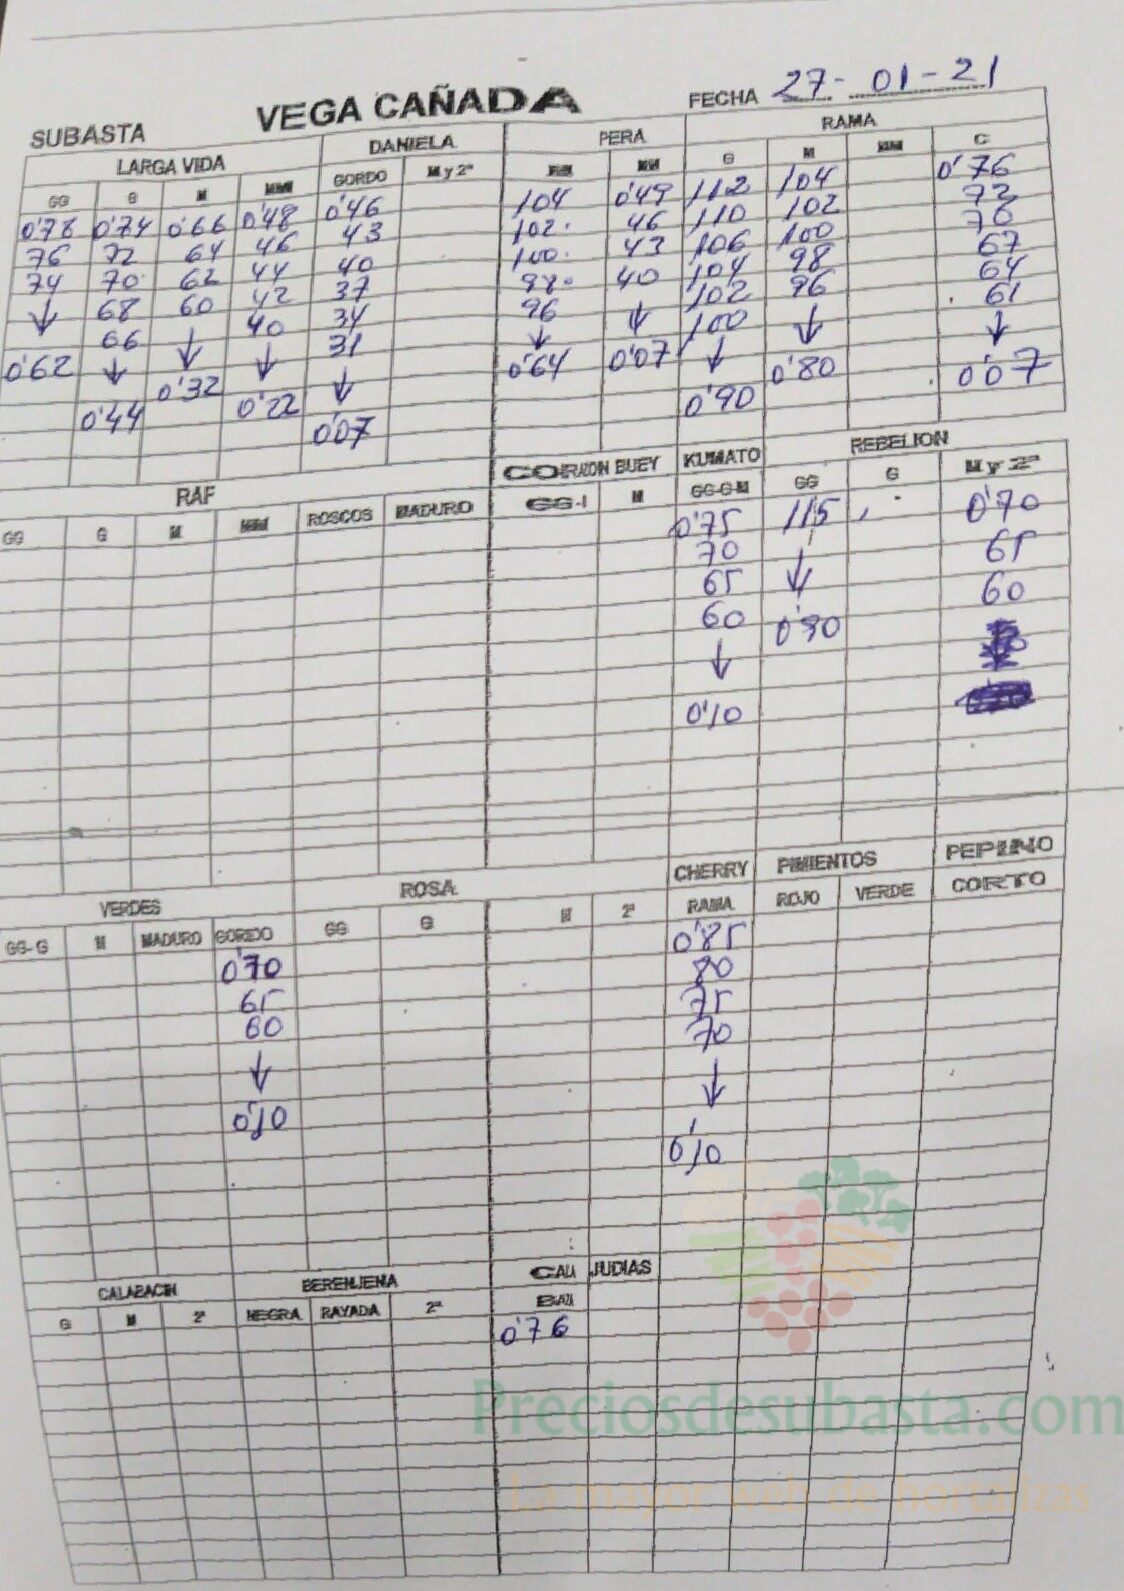 SUBASTA VEGA CAÑADA FECHA 27-01-21
LARGA VIDA DANIELA PERA RAMA
GG G M MM GORDO M y 2ª MM G M MM C
0'78 0'74 0'66 0'48 0'46 104 0'49 112 104 0'76
76 72 64 46 43 102. 46 110 102 73
74 70 62 44 40 100. 43 106 100 70
↓ 68 60 42 37 98. 40 104 98 67
66 ↓ 40 34 96 ↓ 102 96 64
0'62 ↓ 0'32 ↓ 31 ↓ 0'07 100 ↓ 61
0'44 0'22 ↓ 0'64 ↓ 0'80 ↓
0'07 0'90 0'07
RAF CORAZON BUEY KUMATO REBELION
GG G M MM ROSCOS MADURO GG-1 M GG-G-M GG G M y 2ª
0'75 115 0'70
70 ↓ 65
65 0'90 60
60
↓
0'10
VERDES ROSA CHERRY PIMIENTOS PEPINO
GG-G M MADURO GORDO GG G M 2ª RAMA ROJO VERDE CORTO
0'70 0'85
65 80
60 75
↓ 70
0'10 ↓
0'10
CALABACIN BERENJENA CALI JUDIAS
G M 2ª NEGRA RAYADA 2ª
0'76
Preciosdesubasta.com
La mayor web de hortalizas